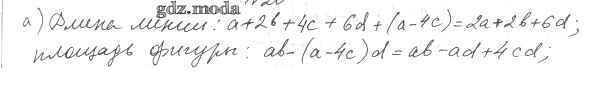 gdz.moda
а) Длина линии: a+2b+4c+6d+(a-4c)=2a+2b+6d;
площадь фигуры: ab-(a-4c)d=ab-ad+4cd;